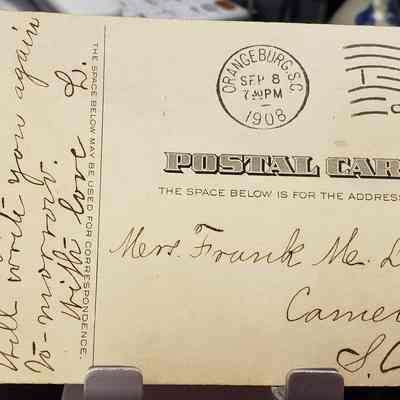 Will write you again
To-morrow.
With love L.
THE SPACE BELOW MAY BE USED FOR CORRESPONDENCE.
ORANGEBURG, S.C.
SEP 8
7 PM
1908
POSTAL CAR
THE SPACE BELOW IS FOR THE ADDRESS
Mrs. Frank M. D
Camer
S.C